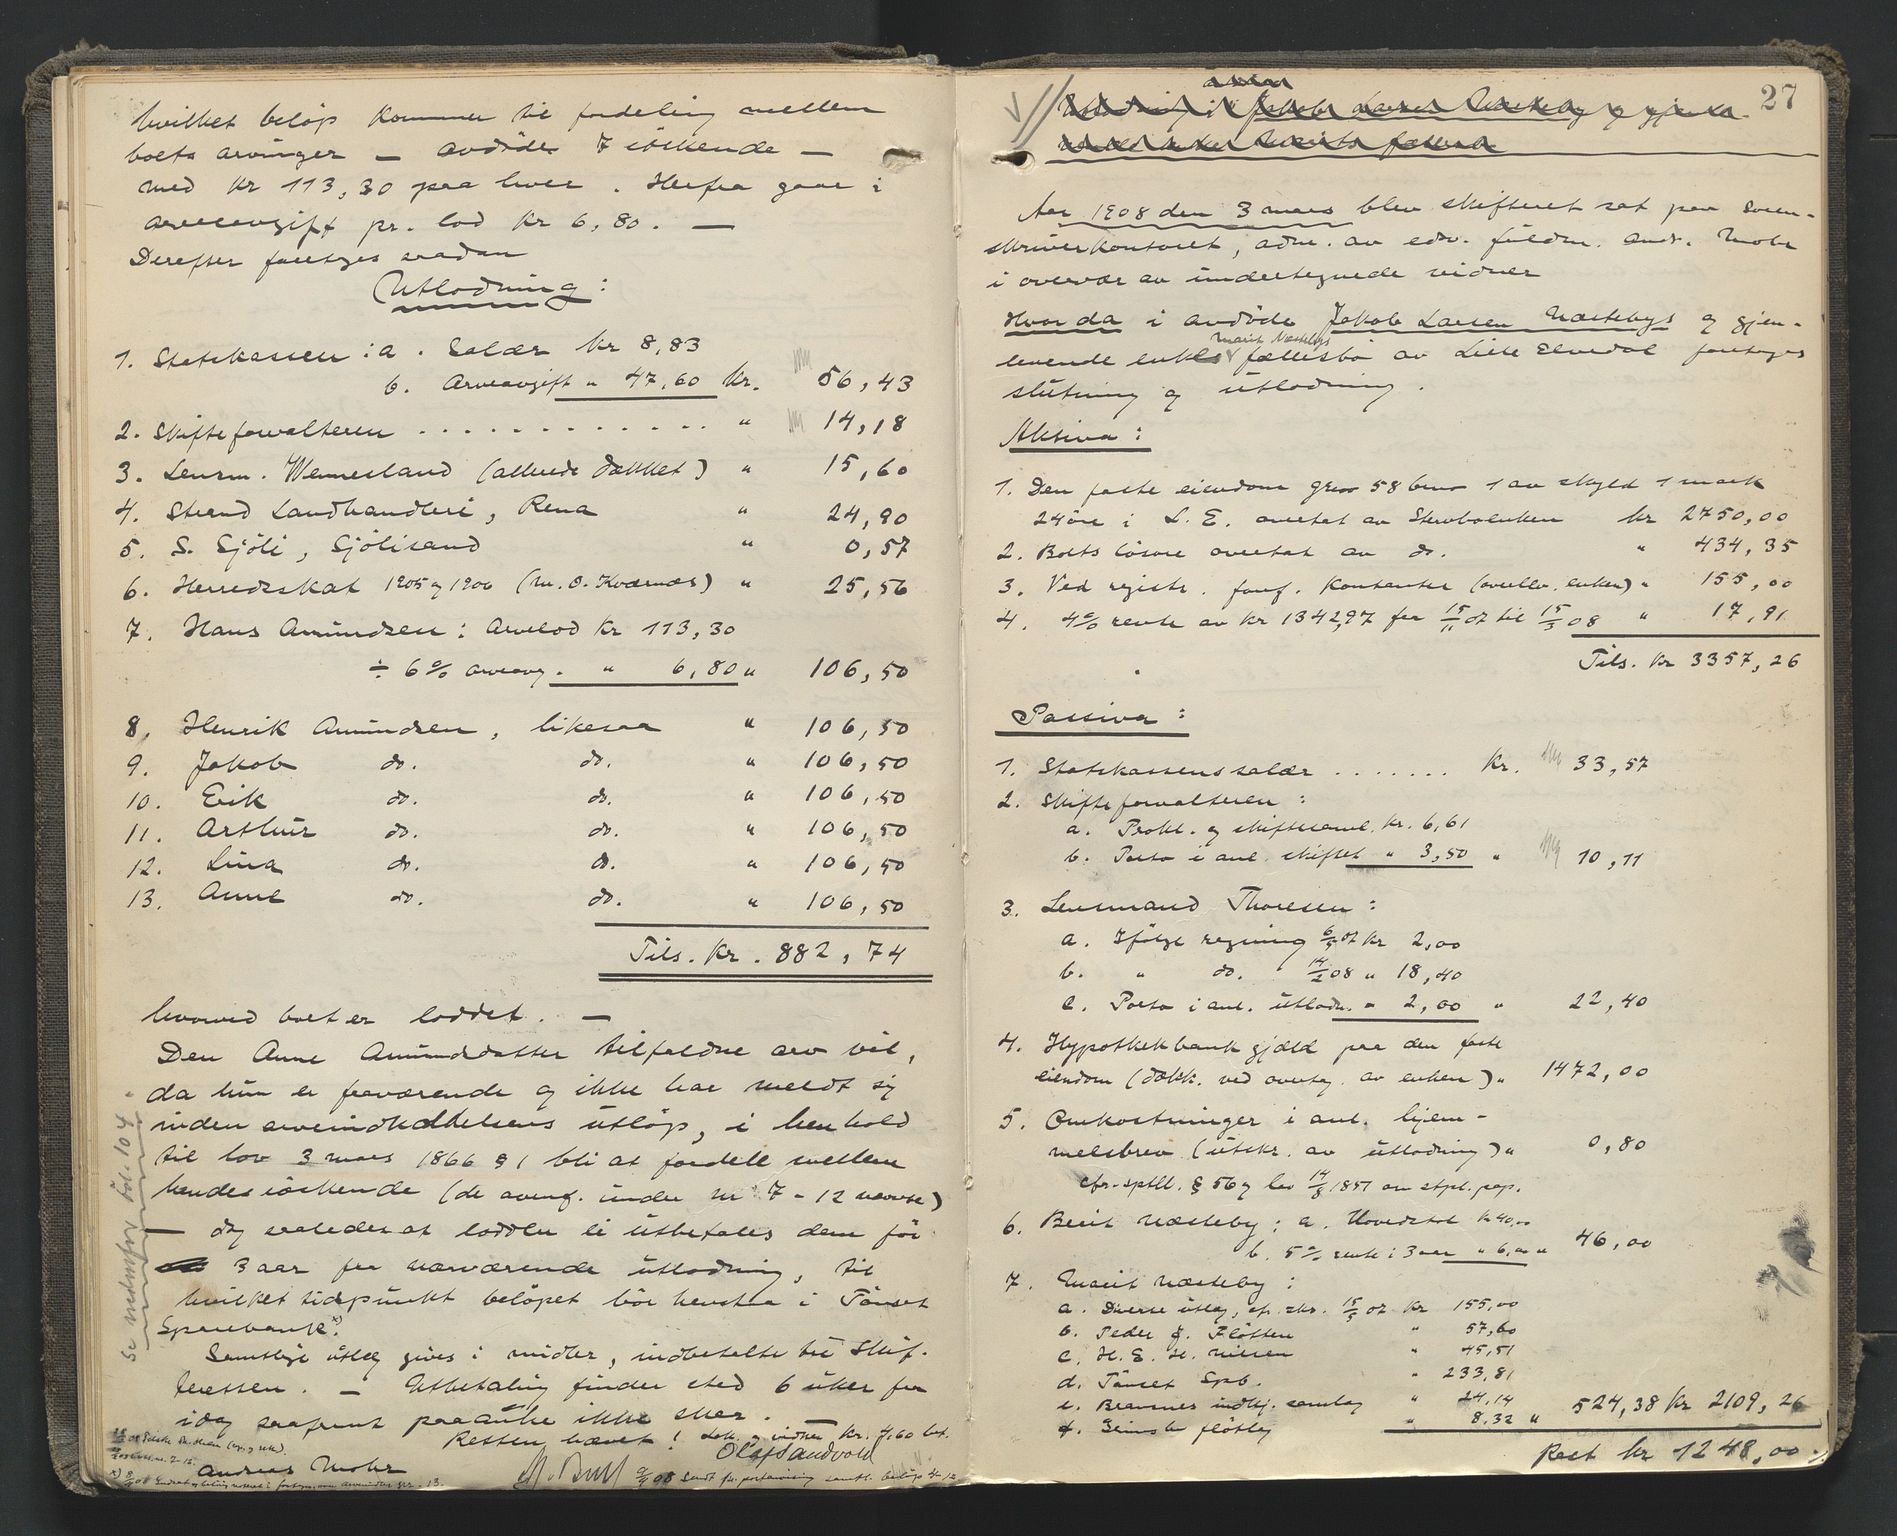 hvilket beløp kommer til fordeling mellem
boets arvinger — avdødes 7 søskende —
med kr 113,30 paa hver. Herfra gaar i
arveavgift pr. lod kr 6,80. —
Derefter foretages saadan
Utlodning:
1. Statskassen: a. Salær kr 8,83
b. Arveavgift " 47,60 kr. 56,43
2. Skifteforvalteren . . . . . . . . . . . . " 14,18
3. Lensm. Wennesland (allerede dækket) " 15,60
4. Strand Landhandleri, Rena " 24,90
5. S. Sjöli, Sjölisand " 0,57
6. Herredsskat 1905 og 1906 (m. O. Kværnæs) " 25,56
7. Hans Amundsen: Arvelod kr 113,30
÷ 6 % arveavg. " 6,80 " 106,50
8. Henrik Amundsen, likesaa " 106,50
9. Jakob do. do. " 106,50
10. Erik do. do. " 106,50
11. Arthur do. do. " 106,50
12. Lina do. do. " 106,50
13. Anne do. do. " 106,50
Tils. Kr. 882,74
hvorved boet er loddet. —
Den Anne Amundsdatter tilfaldne arv vil,
da hun er fraværende og ikke har meldt sig
inden arveindkaldelsens utløp, i henhold
til lov 3 mars 1866 § 1 bli at fordele mellem
hendes søskende (de ovenf. under nr 7-12 nævnte)
— dog saaledes at lodden ei utbetales dem før
3 aar fra nærværende utlodning, til
hvilket tidspunkt beløpet bør henstaa i Tönset
Sparebank x).
Samtlige utlæg gives i midler, indbetalte til Skif-
teretten. — Utbetaling finder sted 6 uker fra
idag saafremt paaanke ikke sker.
Retten hævet! Lok. og vidner kr. 4,60 bet.
Andreas Mohr
Olaf Sandvold
Se nedenfor fol. 104.
27
Aar 1908 den 3 mars blev skifteret sat paa Soren-
skriverkontoret, adm. av edsv. fuldm. Andr. Mohr
i overvær av undertegnede vidner
Hvorda i avdøde Jakob Larsen Næstebys og gjen-
levende enke Marit Næstebys fællesbo av Lille Elvedal foretoges
slutning og utlodning.
Aktiva:
1. Den faste eiendom grno 58 bno 1 av skyld 1 mark
24 öre i L. E. overtat av Stervboenken kr 2750,00
2. Boets løsøre overtat av do. " 434,35
3. Ved registr. foref. kontanter (overlev. enken) " 155,00
4. 4 % rente av kr 1342,97 fra 15/11 07 til 15/3 08 " 17,91
Tils. kr 3357,26
Passiva:
1. Statskassens salær . . . . . . . Kr. 33,57
2. Skifteforvalteren:
a. Prokl. og skiftesaml. kr. 6,61
b. Porto i anl. skiftet " 3,50 " 10,11
3. Lensmand Thoresen:
a. Ifølge regning 6/5 07 kr 2,00
b. " do. 14/2 08 " 18,40
c. Porto i anl. utlodn. " 2,00 " 22,40
4. Hypothekbankgjæld paa den faste
eiendom (dækk. ved overtag. av enken) " 1472,00
5. Omkostninger i anl. hjem-
melsbrev (utskr. av utlodning) " 0,80
cfr. sptll. § 56 og lov 14/8 1851 om stpl. pap.
6. Berit Næsteby: a. Hovedstol kr 40,00
b. 5 % rente i 3 aar " 6,00 " 46,00
7. Marit Næsteby:
a. Diverse utlæg, cf. skr. 15/5 07 kr 155,00
b. Peder J. Flötten " 57,60
c. H. E. H. Nilsen " 45,51
d. Tönset Spb. " 233,81
e. indkj. samlag " 24,14
f. Grimsbu flötlag " 8,32 " 524,38 kr 2109,26
Rest kr 1248,00